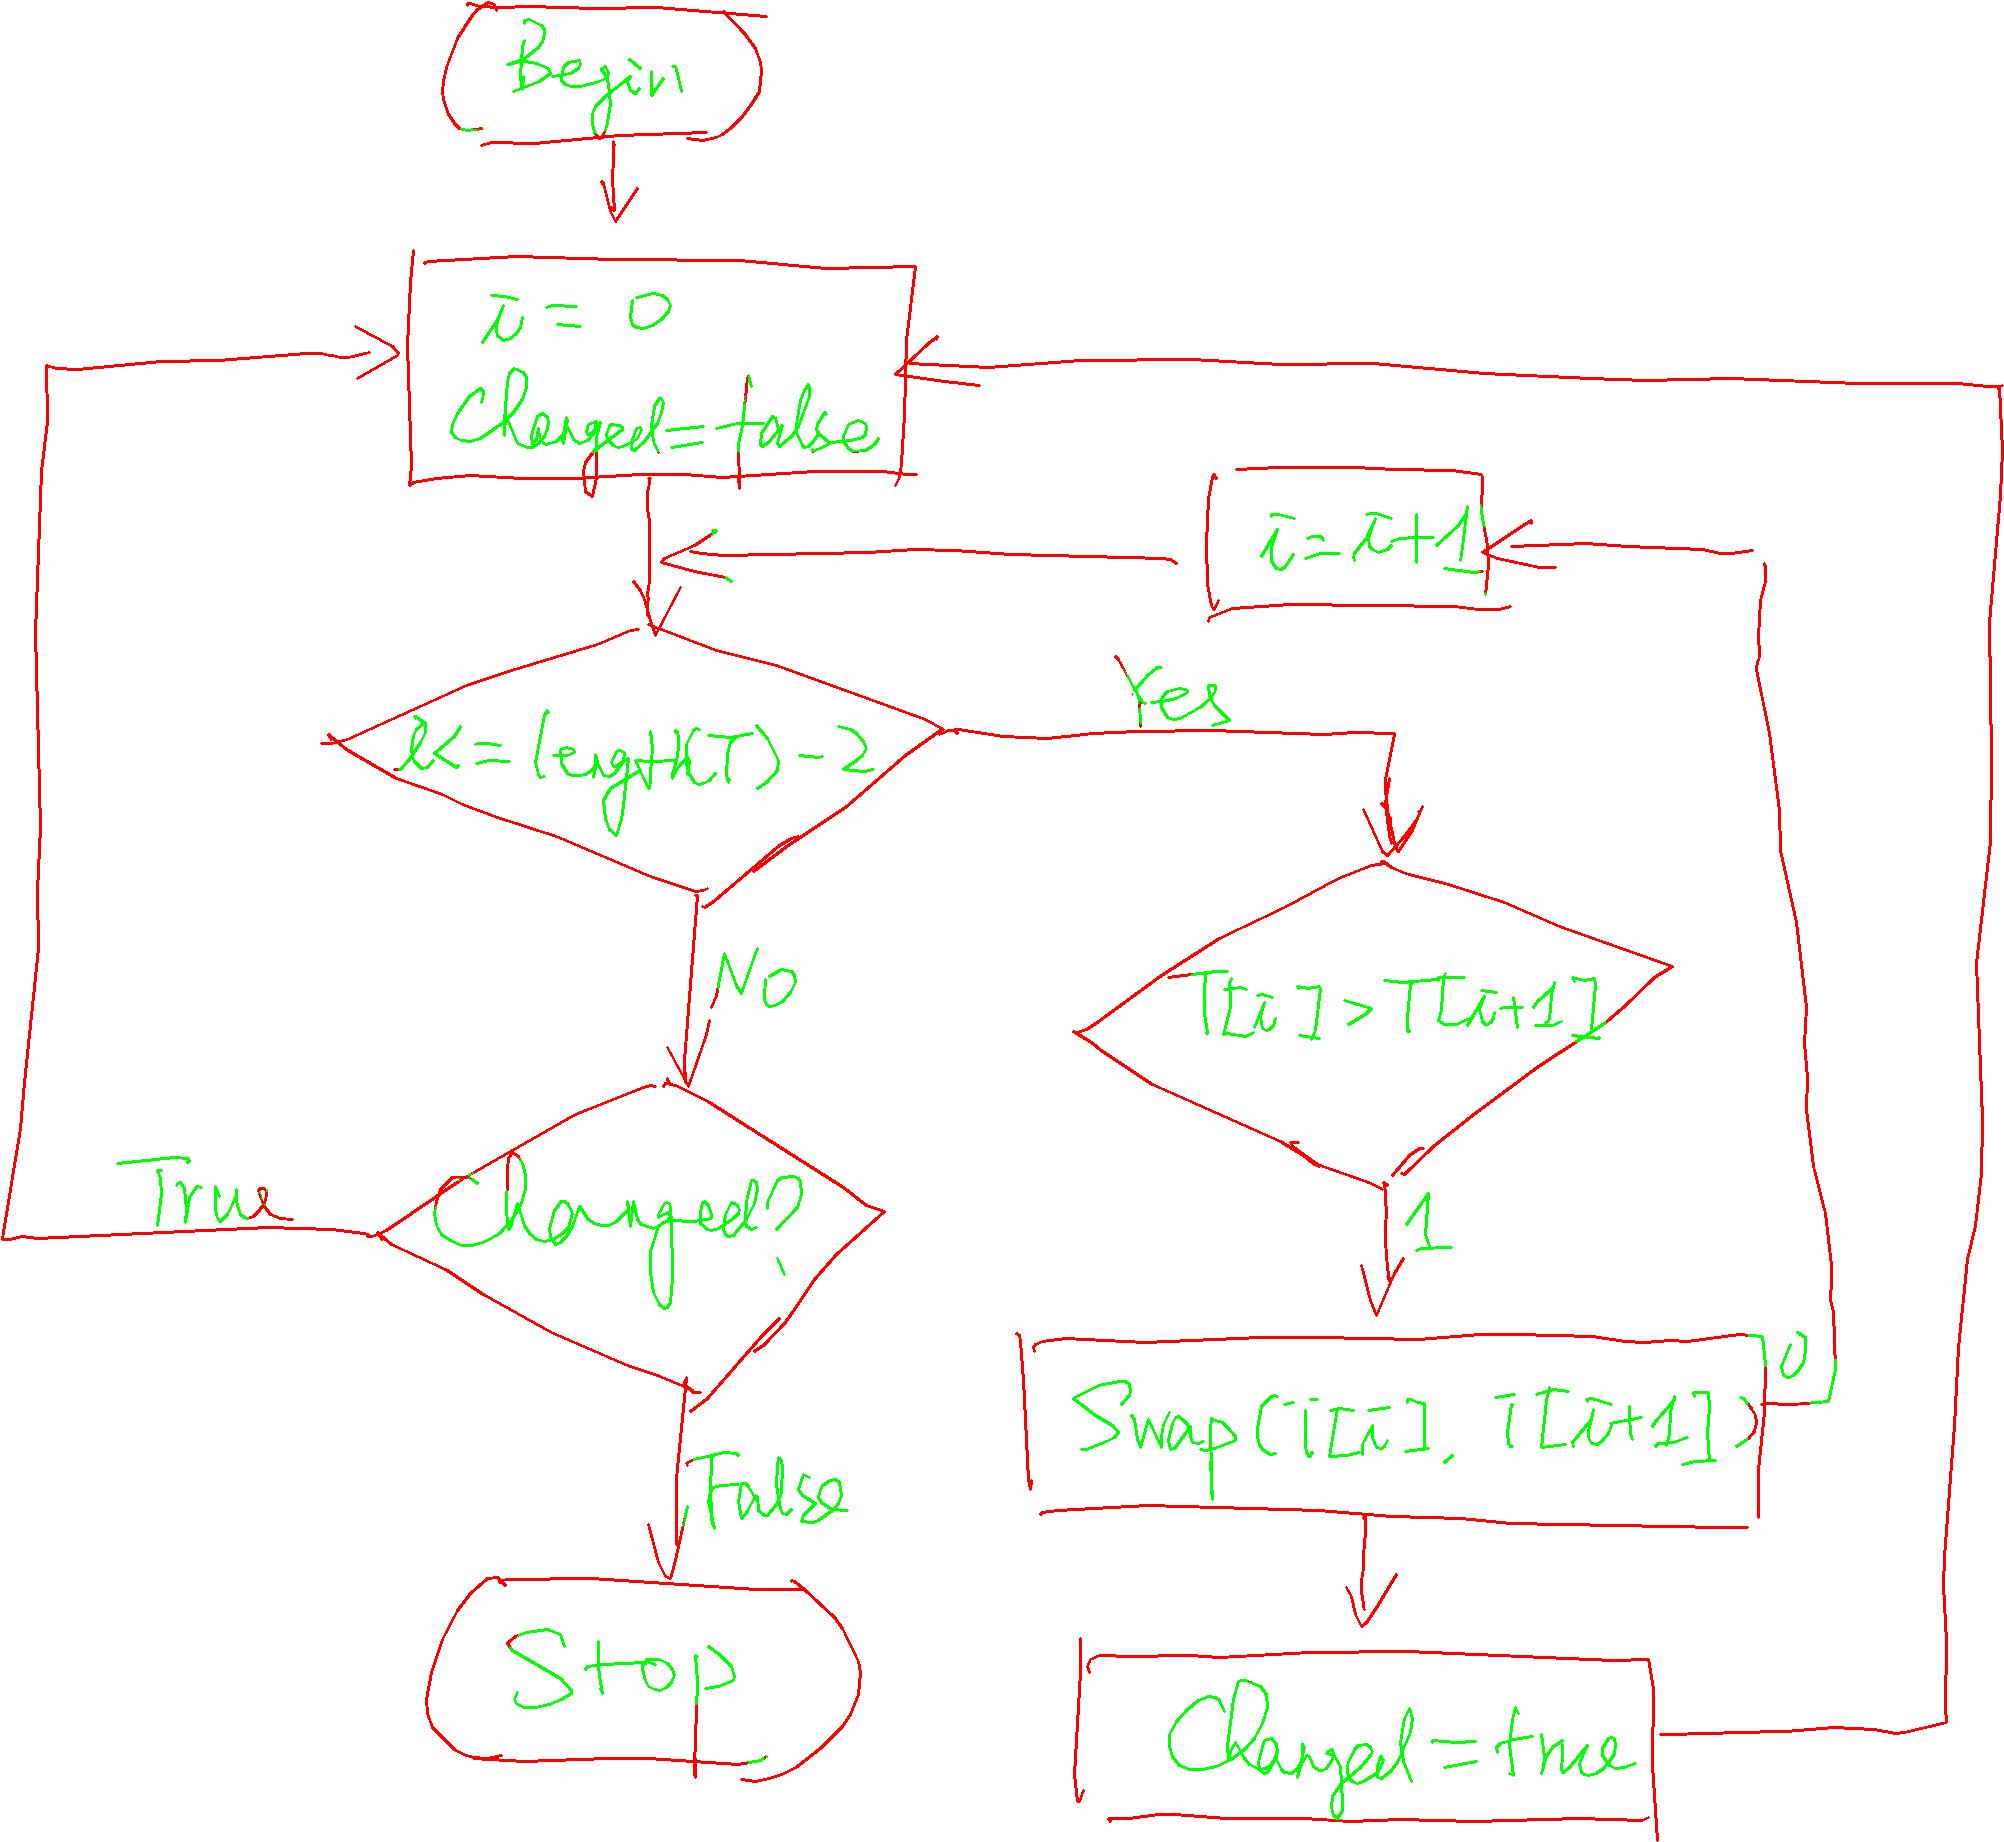 Begin
i = 0
Changed = false
i = i+1
i <= length(T) - 2
Yes
No
T[i] > T[i+1]
True
Changed?
1
0
Swap(T[i], T[i+1])
False
Stop
Changed = true